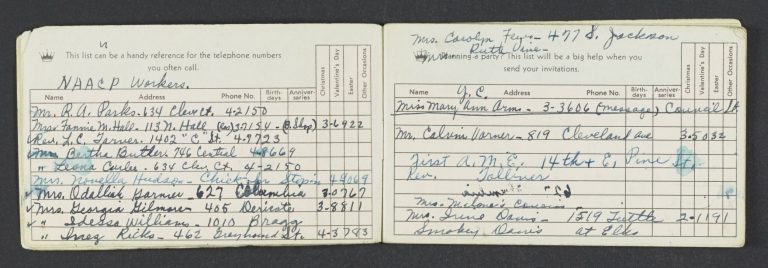 This list can be a handy reference for the telephone numbers
you often call.
NAACP Workers.
Name Address Phone No. Birth-days Anniver-saries Christmas Valentine's Day Easter Other Occasions
Mr. R. A. Parks - 634 Clev Ct. 4-2150
Mrs. Fannie M. Hall - 113 N. Hall (Res) 37154 - (B. Shop) 3-6922
Rev. L. C. Tarver. 1402 "C" St. 4-9723
Mrs Bertha Butler 746 Central 48669
" Leona - 634 Clev Ct. 4-2150
Mrs. Novella Hudson - Chick-Inn Stop in 49069
Mrs. Odalliah Garner - 627 Columbia 3-0767
Mrs. Georgia Gilmore 405 Dericote 3-8811
" Idessa Williams - 1010 Bragg
" Inez Ricks - 462 Greyhound St. 4-3783
Mrs. Carolyn - 477 S. Jackson
Ruth
Planning a party? This list will be a big help when you
send your invitations.
Y. C.
Name Address Phone No. Birth-days Anniver-saries Christmas Valentine's Day Easter Other Occasions
Miss Mary Ann Arms - 3-3606 (message) Council St
Mr. Calvin Varner - 819 Cleveland Ave 3-5032
First A. M. E. 14th + E. Pine St.
Rev. Tolliver
Mrs. Cousin
Mrs. Irene Davis - 1519 Tuttle 2-1191
Smokey Davis at Elks